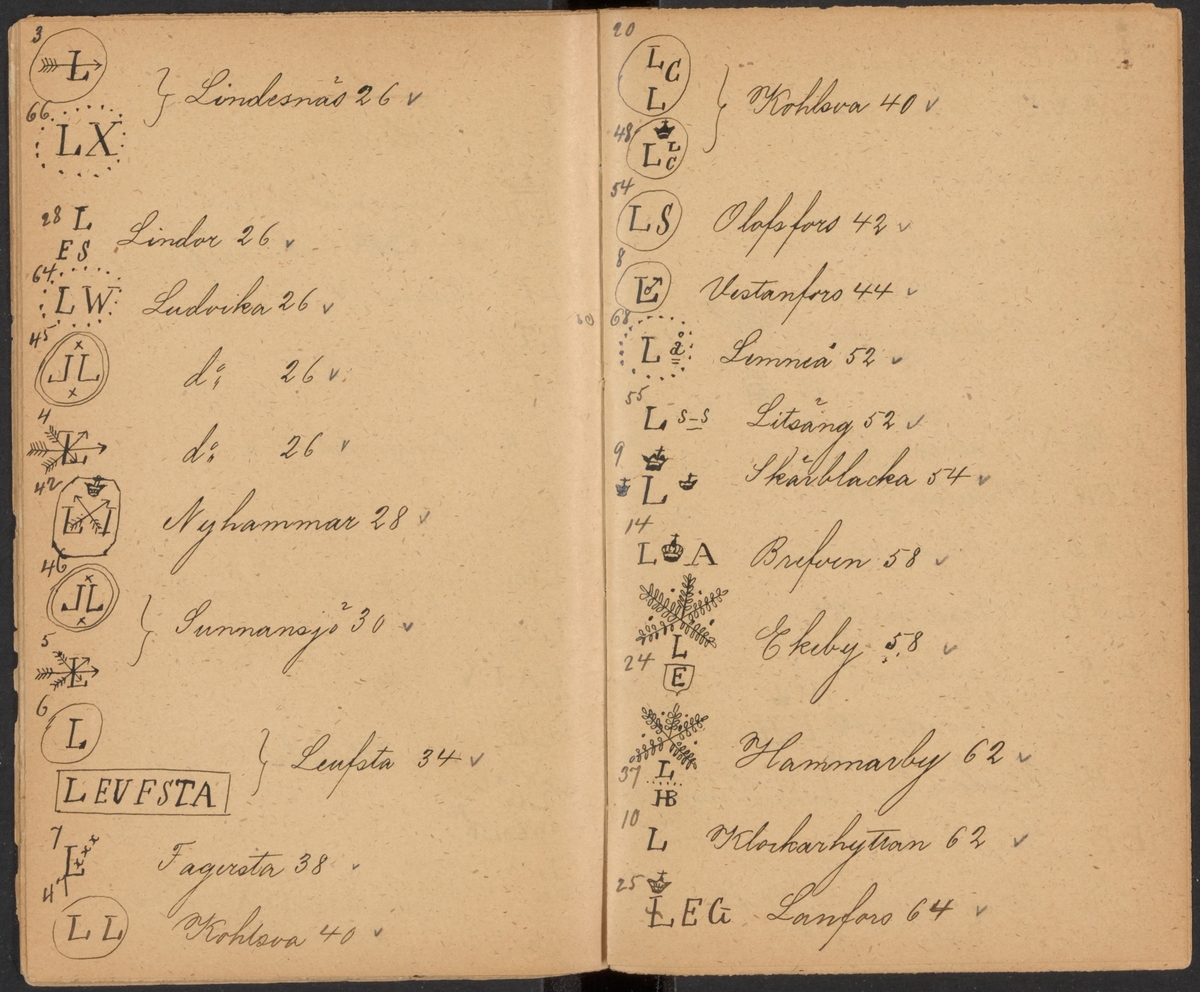 3
L
Lindesnäs 26 v
66
LX
28 L
ES
Lindor 26 v
64
LW
Ludvika 26 v
45
JL
do 26 v
4
L
do 26 v
42
L J
Nyhammar 28 v
46
JL
Sunnansjö 30 v
5
L
6
L
Leufsta 34 v
LEUFSTA
7
L xxx
Fagersta 38 v
4
L L
Kohlsva 40 v
20
L C
L
Kohlsva 40 v
48
L L
C
54
L S
Olofsfors 42 v
8
L
Vestanfors 44 v
68
L å
Limneå 52 v
55
L S-S
Litsång 52 v
9
L
Skärblacka 54 v
14
L A
Brefven 58 v
L
24
E
Ekeby 58 v
L
37
HB
Hammarby 62 v
10
L
Klockarhyttan 62 v
25
LEG
Lanfors 64 v